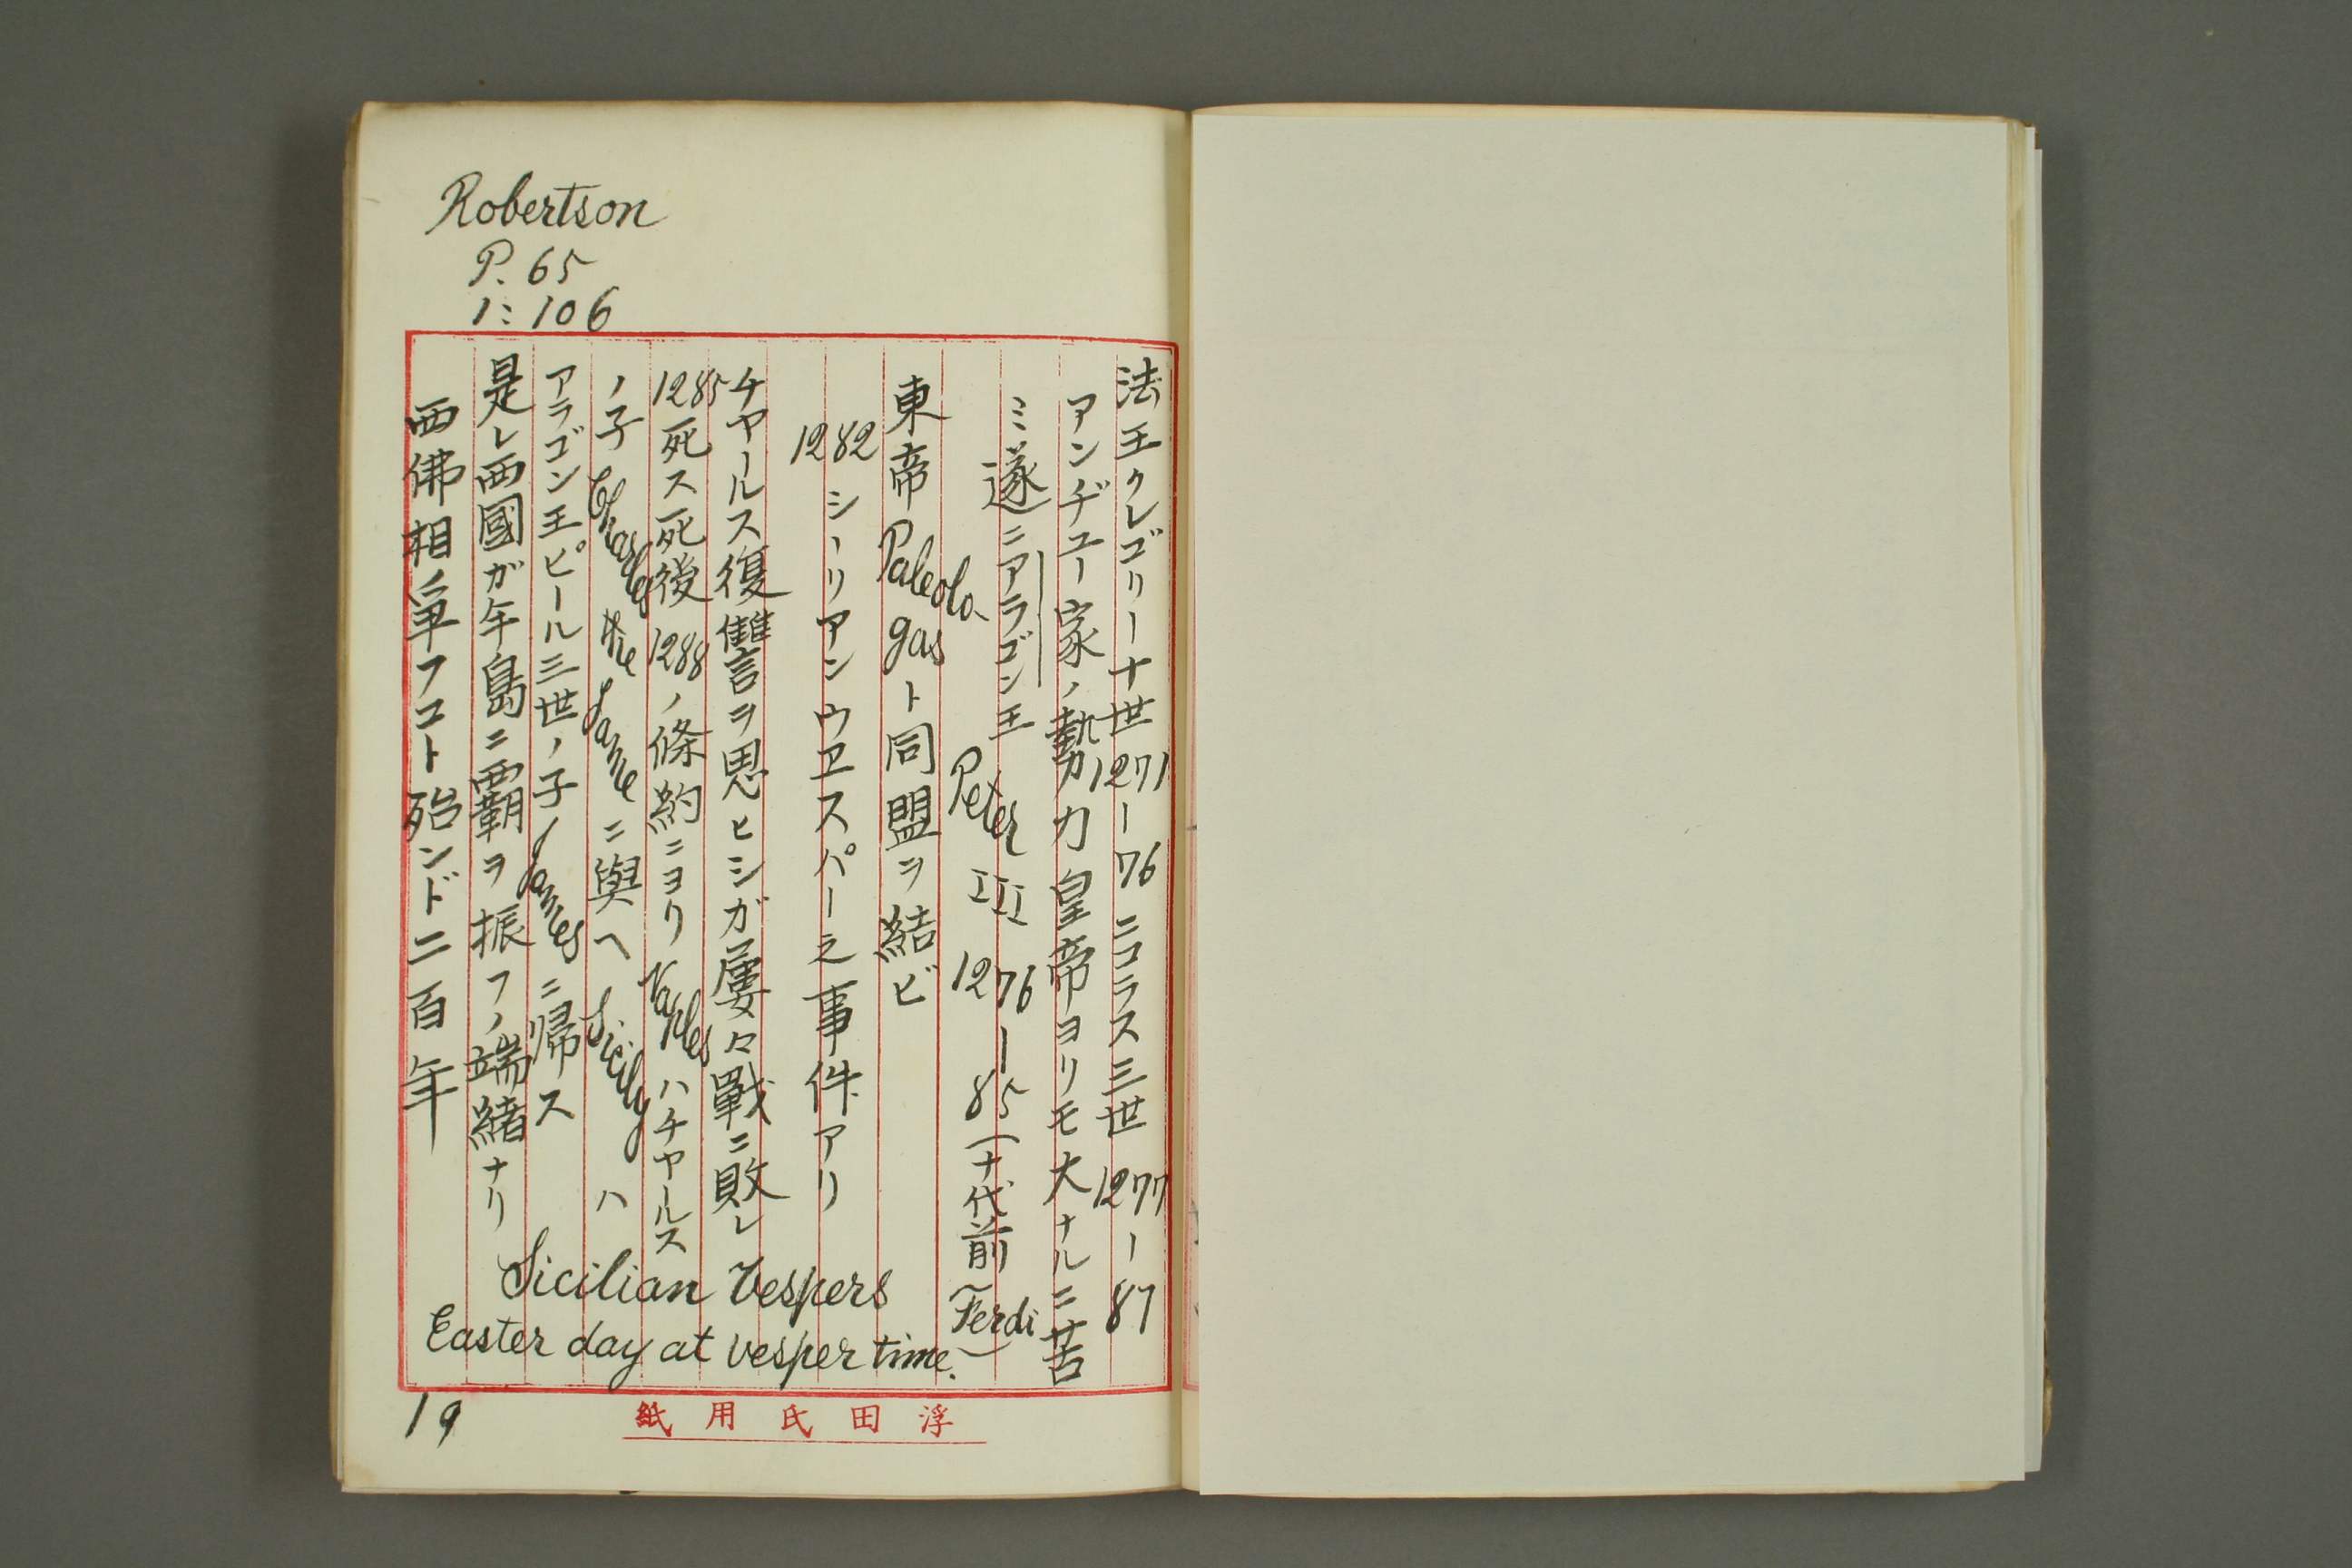 Robertson
P. 65
1: 106
法王クレゴリー十世1271-76ニコラス三世1277-87
アンヂユー家ノ勢力皇帝ヨリモ大ナルニ苦
ミ遂ニアラゴン王Peter III 1276-85(十代前(Ferdi)
東帝Paleolo-
gasト同盟ヲ結ビ
1282シーリアンウヱスパー之事件アリ
チヤールス復讐ヲ思ヒシガ屢々戰ニ敗レ
1285死ス死後1288ノ條約ニヨリNaplesハチヤールス
ノ子Charles the Lameニ與ヘSicilyハ
アラゴン王ピール三世ノ子Jamesニ帰ス
是レ西國ガ午島ニ覇ヲ振フノ端緒ナリ
西佛相爭フコト殆ンド二百年
Sicilian Vespers
Easter day at vesper time.
19
浮田氏用紙